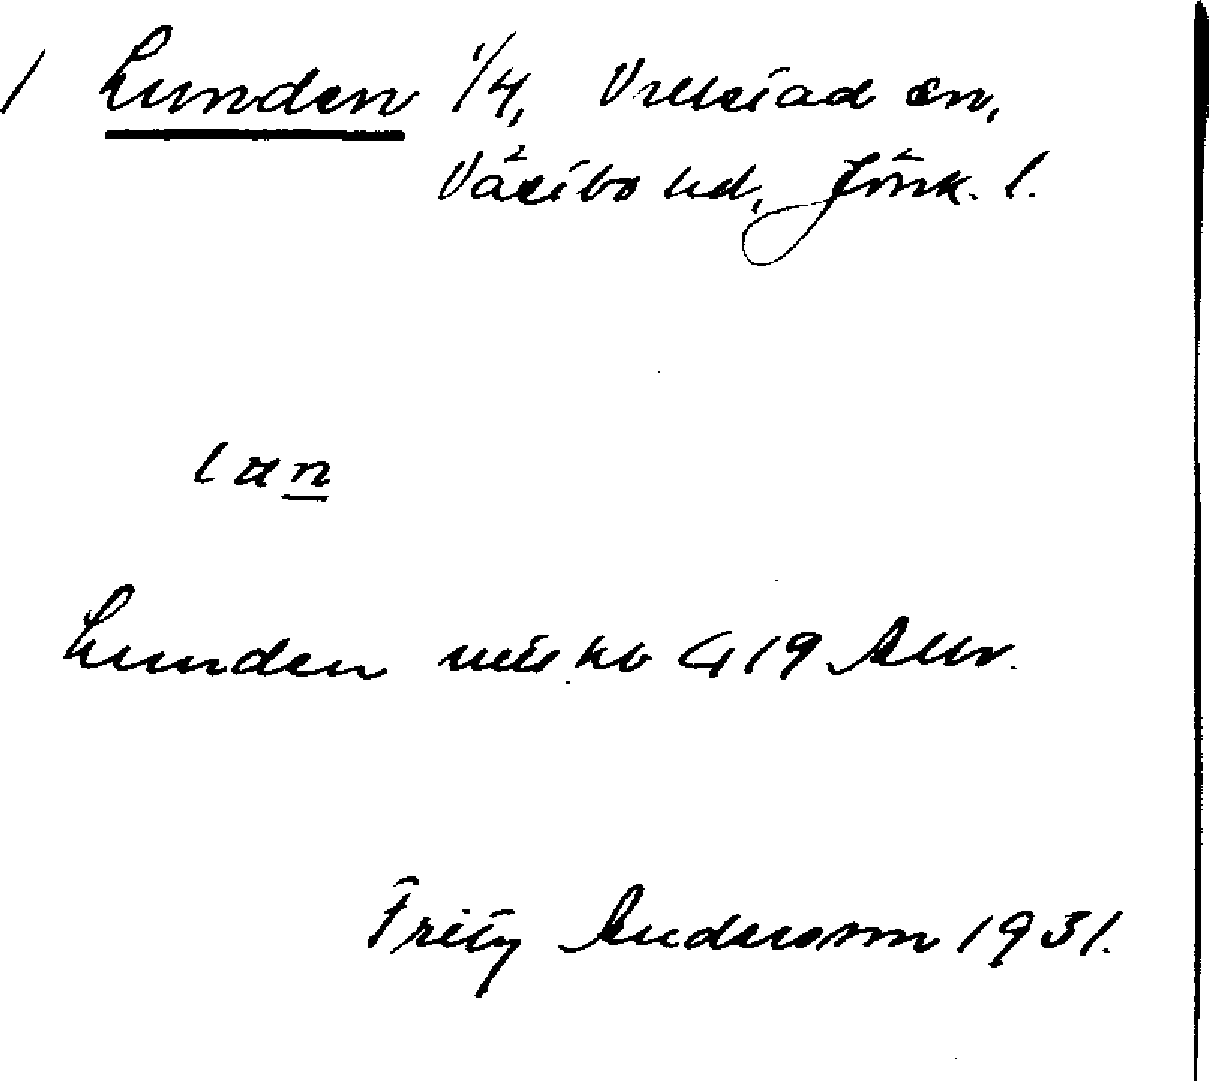 1 Lunden 1/4, Villstad sn,
Västbo hd, Jönk. l.
lan
Lunden
Fritz Andersson 1931.